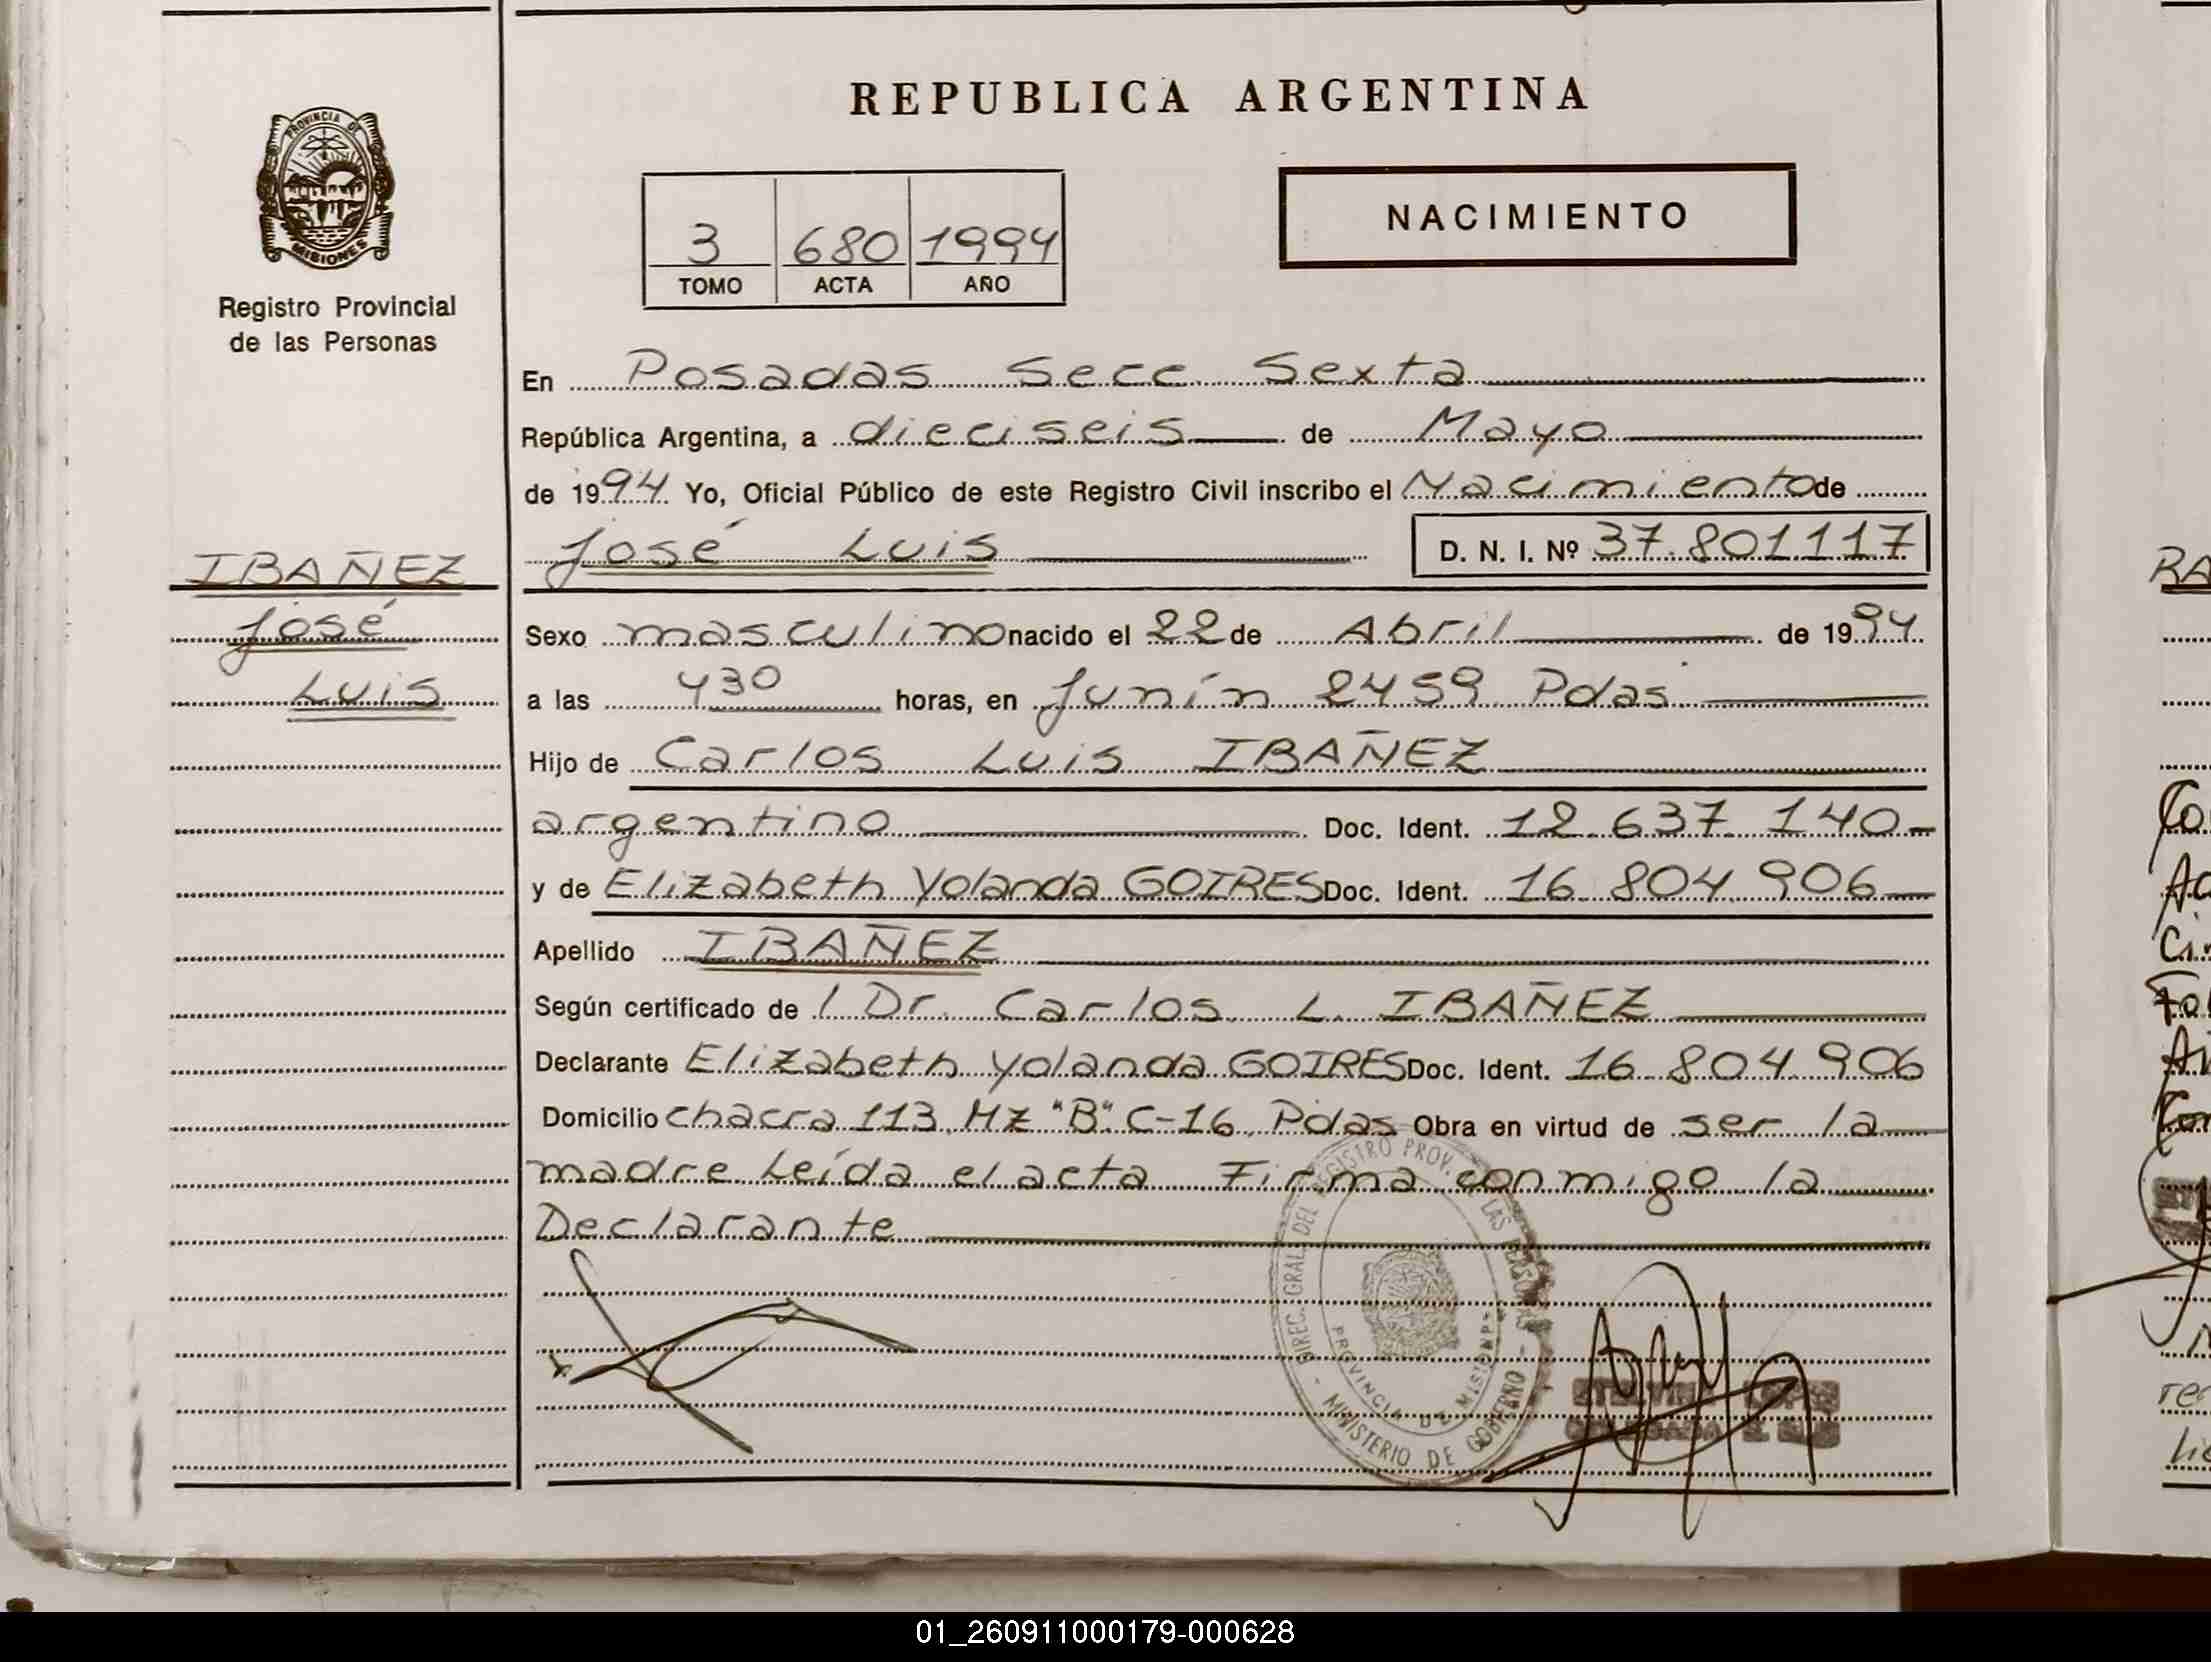 REPUBLICA ARGENTINA
PROVINCIA DE
MISIONES
Registro Provincial
de las Personas
3 680 1994
TOMO ACTA AÑO
NACIMIENTO
En Posadas Secc Sexta
República Argentina, a dieciseis de Mayo
de 1994. Yo, Oficial Público de este Registro Civil inscribo el Nacimiento de
José Luis D. N. I. Nº 37.801117
IBAÑEZ
José
Luis
Sexo masculino nacido el 22 de Abril de 1994
a las 430 horas, en Junín 2459 Pdas.
Hijo de Carlos Luis IBAÑEZ
argentino Doc. Ident. 12.637.140-
y de Elizabeth Yolanda GOIRES Doc. Ident. 16.804.906
Apellido IBAÑEZ
Según certificado de l Dr. Carlos L. IBAÑEZ
Declarante Elizabeth Yolanda GOIRES Doc. Ident. 16.804.906
Domicilio chacra 113 Mz "B" C-16 Pdas Obra en virtud de ser la
madre Leída el acta Firma conmigo la
Declarante
DIREC. GRAL. DEL REGISTRO PROV. LAS PERSONAS
PROVINCIA DE MISIONES
- MINISTERIO DE GOBIERNO -
01_260911000179-000628